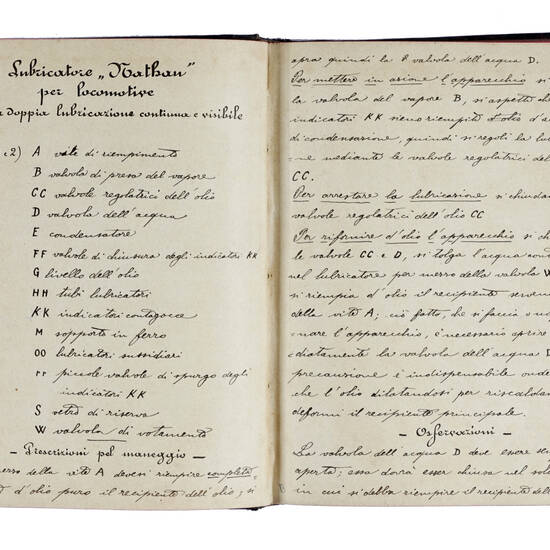 Lubricatore „Nathan"
per locomotive
a doppia lubricazione continua e visibile
A vite di riempimento
B valvola di presa del vapore
CC valvole regolatrici dell'olio
D valvola dell'acqua
E condensatore
FF valvole di chiusura degli indicatori KK
G livello dell'olio
HH tubi lubricatori
KK indicatori contagocce
M supporto in ferro
OO lubricatori sussidiari
rr piccole valvole di spurgo degli
indicatori KK
S vetro di riserva
W valvola di votamento
– Prescrizioni pel maneggio –
mezzo della vite A devesi riempire completa-
d'olio puro il recipiente dell'olio; si
apra quindi la valvola dell'acqua D.
Per mettere in azione l'apparecchio si
la valvola del vapore B, si aspetti ch
indicatori KK sieno riempiti d'a
di condensazione, quindi si regoli la lu
=ne mediante le valvole regolatrici del
CC.
Per arrestare la lubricazione si chiudan
valvole regolatrici dell'olio CC
Per rifornire d'olio l'apparecchio si ch
le valvole CC e D, si tolga l'acqua con
nel lubricatore per mezzo della valvola W
si riempia d'olio il recipiente serven
della vite A; ciò fatto, che si faccia o n
=nare l'apparecchio, è necessario aprire
=diatamente la valvola dell'acqua D
precauzione è indispensabile onde
che l'olio dilatandosi per riscaldam
deformi il recipiente principale.
– Osservazioni –
La valvola dell'acqua D deve essere sem
aperta; essa dovrà esser chiusa nel so
in cui si debba riempire il recipiente de